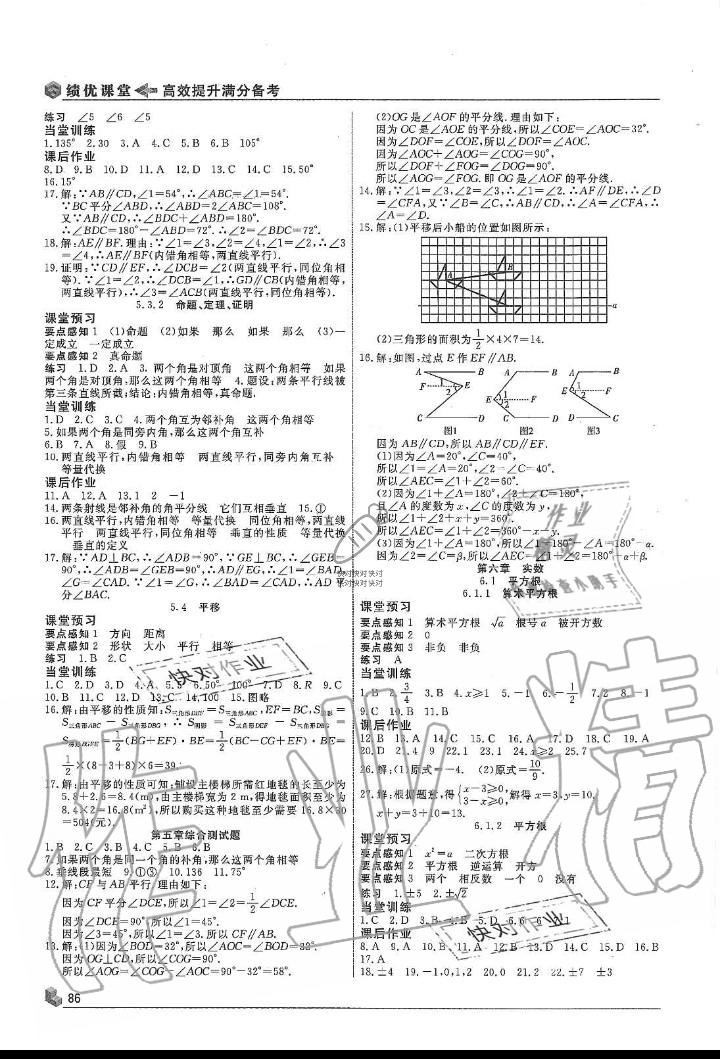 绩优课堂 高效提升满分备考
练习 ∠5 ∠6 ∠5
当堂训练
1.135° 2.30 3.A 4.C 5.B 6.105°
课后作业
8.D 9.B 10.D 11.A 12.D 13.C 14.C 15.50°
16.15°
17.解:∵AB∥CD,∠1=54°,∴∠ABC=∠1=54°.
∵BC平分∠ABD,∴∠ABD=2∠ABC=108°.
又∵AB∥CD,∴∠BDC+∠ABD=180°.
∴∠BDC=180°-∠ABD=72°.∴∠2=∠BDC=72°.
18.解:AE∥BF.理由:∵∠1=∠3,∠2=∠4,∠1=∠2,∴∠3
=∠4,∴AE∥BF(内错角相等,两直线平行).
19.证明:∵CD∥EF,∴∠DCB=∠2(两直线平行,同位角相
等).∵∠1=∠2,∴∠DCB=∠1,∴GD∥CB(内错角相等,
两直线平行).∴∠3=∠ACB(两直线平行,同位角相等).
5.3.2 命题、定理、证明
课堂预习
要点感知1 (1)命题 (2)如果 那么 如果 那么 (3)一
定成立 一定成立
要点感知2 真命题
练习 1.D 2.A 3.两个角是对顶角 这两个角相等 如果
两个角是对顶角,那么这两个角相等 4.题设:两条平行线被
第三条直线所截;结论:内错角相等,真命题.
当堂训练
1.D 2.C 3.C 4.两个角互为邻补角 这两个角相等
5.如果两个角是同旁内角,那么这两个角互补
6.B 7.A 8.假 9.B
10.两直线平行,内错角相等 两直线平行,同旁内角互补
等量代换
课后作业
11.A 12.A 13.1 2 -1
14.两条射线是邻补角的角平分线 它们互相垂直 15.①
16.两直线平行,内错角相等 等量代换 同位角相等,两直线
平行 两直线平行,同位角相等 垂直的性质 等量代换
垂直的定义
17.解:∵AD⊥BC,∴∠ADB=90°.∵GE⊥BC,∴∠GEB
=90°,∴∠ADB=∠GEB=90°,∴AD∥GE,∴∠1=∠BAD,
∠G=∠CAD.∵∠1=∠G,∴∠BAD=∠CAD,∴AD平
分∠BAC.
5.4 平移
课堂预习
要点感知1 方向 距离
要点感知2 形状 大小 平行 相等
练习 1.B 2.C
当堂训练
1.C 2.D 3.D 4.A 5.5 6.50° 100° 7.D 8.R 9.C
10.B 11.C 12.D 13.C 14.100 15.图略
16.解:由平移的性质知:
(BG+EF)·BE=1/2(BC-CG+EF)·BE=
×(8-3+8)×6=39.
17.解:由平移的性质可知:铺设主楼梯所需红地毯的长至少为
5.8+2.6=8.4(m),由主楼梯宽为2 m,得地毯面积至少为
8.4×2=16.8(m²),所以购买这种地毯至少需要16.8×30
=504(元).
第五章综合测试题
1.B 2.C 3.A 4.C 5.B 6.B
7.如果两个角是同一个角的补角,那么这两个角相等
8.垂线段最短 9.①③ 10.136 11.75°
12.解:CF与AB平行.理由如下:
因为CF平分∠DCE,所以∠1=∠2=1/2∠DCE,
因为∠DCE=90°,所以∠1=45°.
因为∠3=45°,所以∠1=∠3.所以CF∥AB.
13.解:(1)因为∠BOD=32°,所以∠AOC=∠BOD=32°.
因为OG⊥CD,所以∠COG=90°.
所以∠AOG=∠COG-∠AOC=90°-32°=58°.
86
(2)OG是∠AOF的平分线.理由如下:
因为OC是∠AOE的平分线,所以∠COE=∠AOC=32°.
因为∠DOF=∠COE,所以∠DOF=∠AOC.
因为∠AOC+∠AOG=∠COG=90°,
所以∠DOF+∠FOG=∠DOG=90°,
所以∠AOG=∠FOG.即OG是∠AOF的平分线.
14.解:∵∠1=∠3,∠1=∠2,∴∠3=∠2.∴AF∥DE,∴∠D
=∠CFA.∵∠B=∠C,∴AB∥CD,∴∠A=∠CFA,∴
∠A=∠D.
15.解:(1)平移后小船的位置如图所示:
A B a
(2)三角形的面积为1/2×4×7=14.
16.解:如图,过点E作EF∥AB.
A B A B A B
F E 1 2 E 1 2 F E 1 2 F
C D C D C D
图1 图2 图3
因为AB∥CD,所以AB∥CD∥EF.
(1)因为∠A=20°,∠C=40°,
所以∠1=∠A=20°,∠2=∠C=40°,
所以∠AEC=∠1+∠2=60°.
(2)因为∠1+∠A=180°,∠2+∠C=180°,
且∠A的度数为x,∠C的度数为y,
所以∠1+∠2+x+y=360°,
所以∠AEC=∠1+∠2=360°-x-y.
(3)因为∠1+∠A=180°,所以∠1=180°-α.因为∠2=
∠C=β,所以∠AEC=∠1+∠2=180°-α+β.
第六章 实数
6.1 平方根
6.1.1 算术平方根
课堂预习
要点感知1 算术平方根 √a 根号a 被开方数
要点感知2 0
要点感知3 非负 非负
练习 A
当堂训练
1.B 2.3/4 3.C 4.x≥1 5.-1 6.-1/2 7.2 8.-1
9.C 19.B 11.B
课后作业
12.B 13.A 14.A 15.C 16.A 17.C 18.B 19.A
20.D 21.4 9 22.1 23.1 24.x>2 25.7
26.解:(1)原式=-4. (2)原式=10/9.
27.解:根据题意,得{x-3≥0, 3-x≥0, 解得x=3,y=10,
x+y=3+10=13.
6.1.2 平方根
课堂预习
要点感知1 x²=a 二次方根
要点感知2 平方根 逆运算 开方
要点感知3 两个 相反数 一个 0 没有
练习 1.±5 2.±√2
当堂训练
1.C 2.D 3.±2 4.B 5.D 6.6
课后作业
8.A 9.A 10.B 11.C 12.B 15.D 16.B
17.A
18.±4 19.-1,0,1,2 20.0 21.2 22.±7 ±3
快对作业
快对作业
快对快对快对
作业
检查小助手
作业精